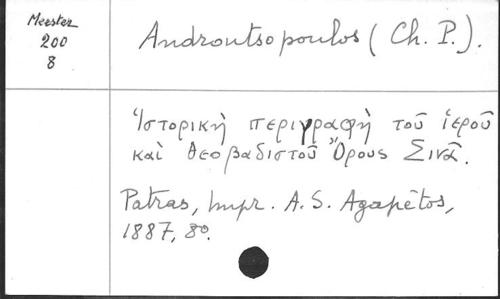 Meester
200
8
Androutsopoulos (Ch. P.).
Ἱστορικὴ περιγραφὴ τοῦ ἱεροῦ
καὶ θεοβαδιστοῦ Ὄρους Σινᾶ.
Patras, Impr. A. S. Agapètos,
1887, 8º.